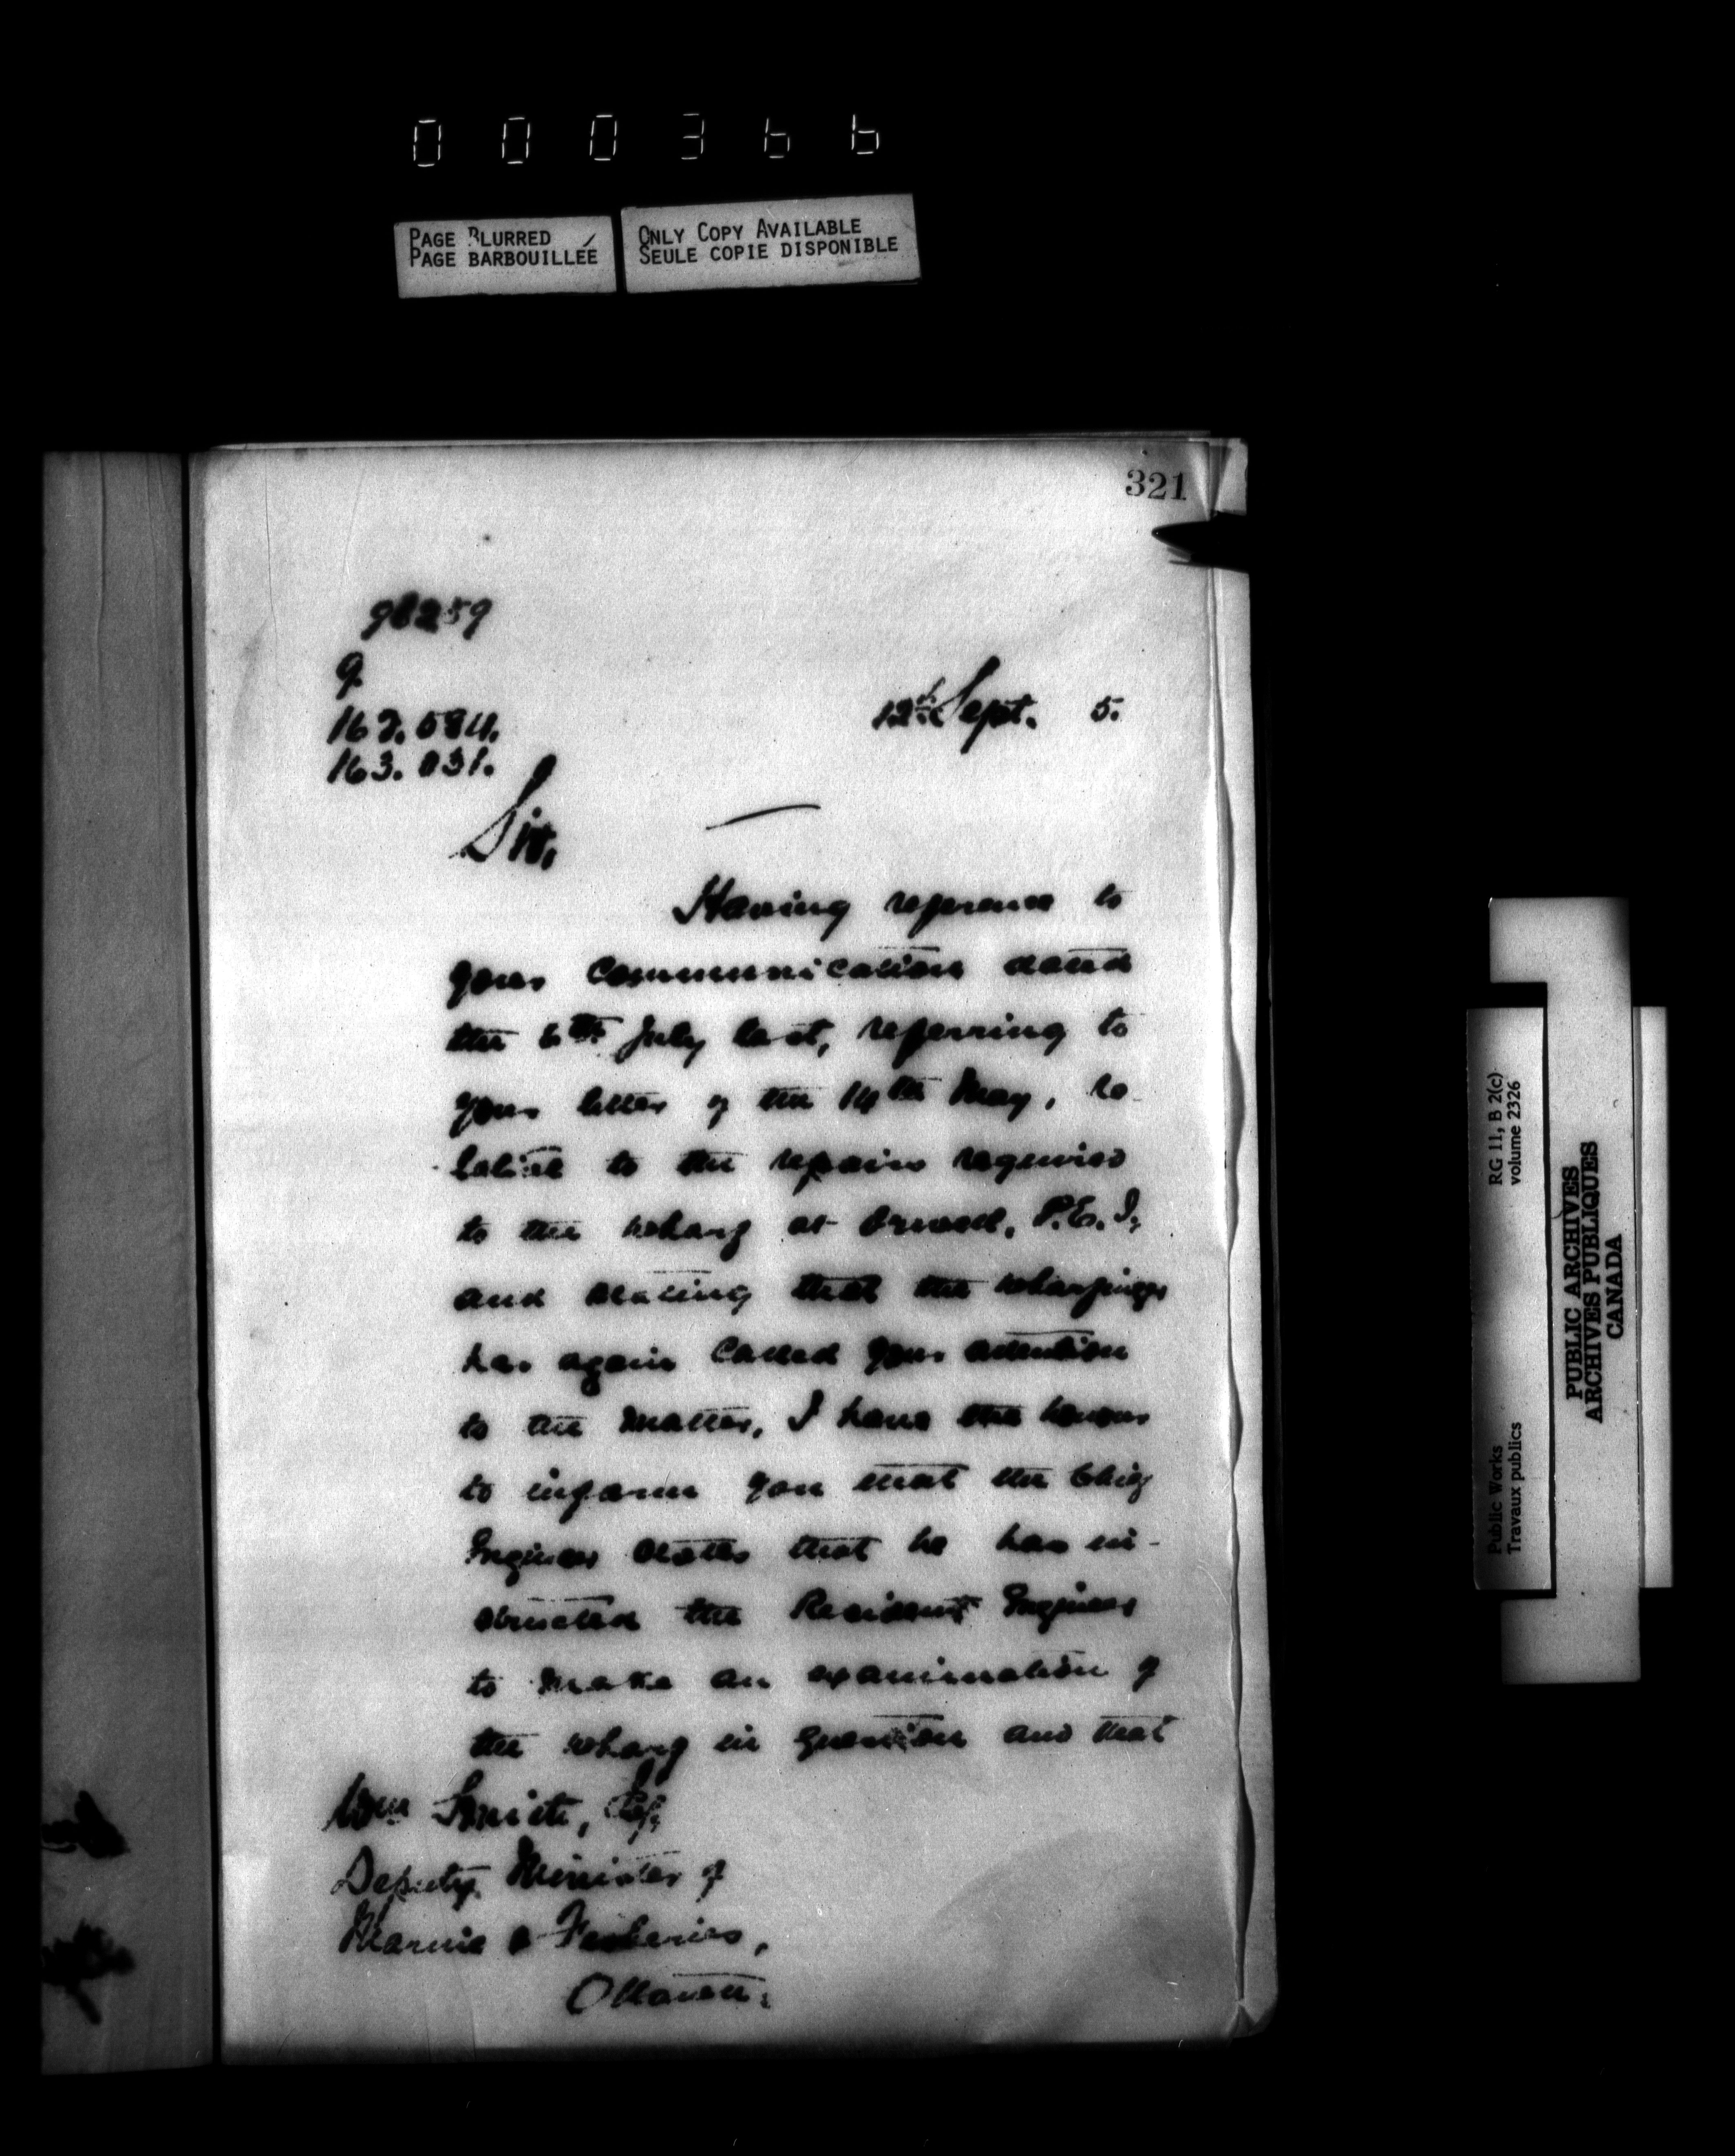 000366
PAGE BLURRED
PAGE BARBOUILLÉE
ONLY COPY AVAILABLE
SEULE COPIE DISPONIBLE
321
98259
9.
163.031.
12th Sept. 5.
Sir,
Having reference to
your communication dated
the 6th July last, referring to
your letter of the 14th May, re-
lative to the repairs required
to the wharf at Orwell, P.E.I.,
and stating that the wharfinger
has again called your attention
to the matter, I have the honour
to inform you that the Chief
Engineer states that he has in-
structed the Resident Engineer
to make an examination of
the wharf in question and that
Wm Smith, Esq.
Deputy Minister of
Marine & Fisheries,
Ottawa.
RG 11, B 2(c)
volume 2326
Public Works
Travaux publics
PUBLIC ARCHIVES
ARCHIVES PUBLIQUES
CANADA